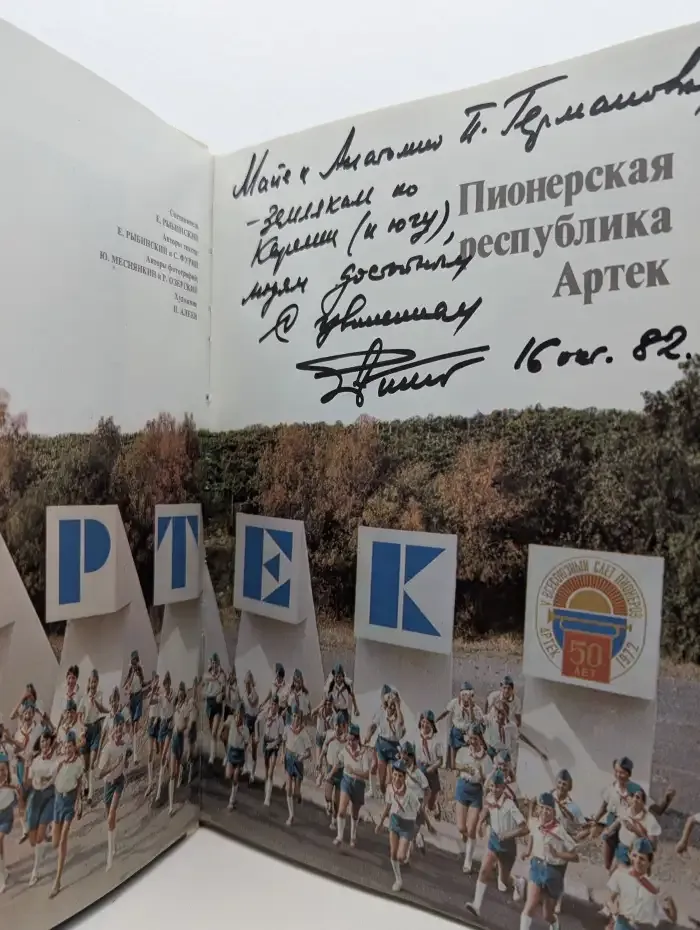 Составитель
Е. РЫБИНСКИЙ
Авторы текста:
Е. РЫБИНСКИЙ и С. ФУРИН
Авторы фотографий:
Ю. МЕСНЯНКИН и Р. ОЗЕРСКИЙ
Художник
Майе и Анатолию П. Германовым,
- землякам по
Карелии (и югу),
людям достойным
С уважением
16 окт. 82.
Пионерская
республика
Артек
РТЕК
V ВСЕСОЮЗНЫЙ СЛЕТ ПИОНЕРОВ
АРТЕК 1972
50
ЛЕТ